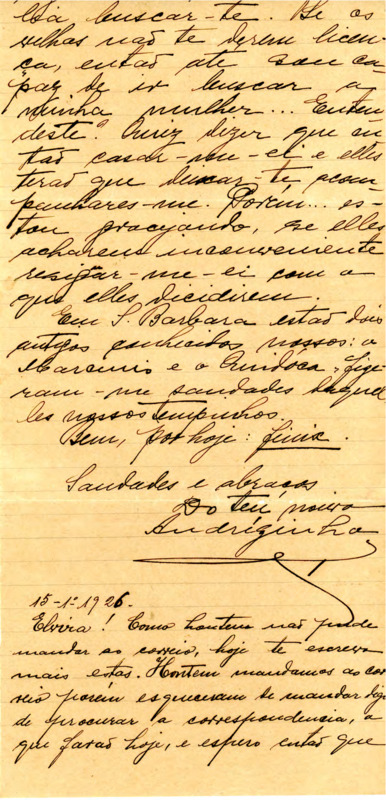 lia buscar-te. Se os
velhas não te derem licen-
ça, então até sou ca-
paz de ir buscar a
minha mulher... Enten
deste? Quiz dizer que en-
tão casar-me-ei e elles
terão que deixar-te acom-
panhares-me. Porém... es-
tou gracejando, se elles
acharem inconveniente
resignar-me-ei com o
que elles dicidirem.
Em S. Barbara estão dois
antigos conhecidos nossos: o
Marcinio e o Quidóca, fize-
ram-me saudades daquel
les nossos tempinhos.
Bem, por hoje: finis.
Saudades e abraços
Do teu noivo
Andrézinho
15-1º-1926.
Elvira! Como hontem não pude
mandar ao correio, hoje te escrevo
mais estas. Hontem mandamos ao cor-
reio porém esqueceram de mandar digo
de procurar a correspondencia, o
que farão hoje, e espero então que